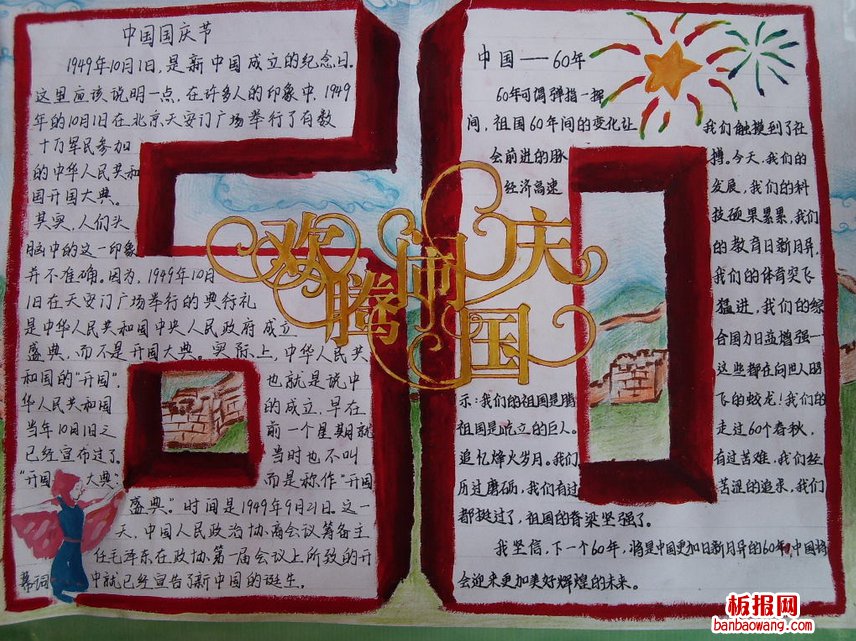 中国国庆节
1949年10月1日,是新中国成立的纪念日。
这里应该说明一点,在许多人的印象中,1949
年的10月1日在北京天安门广场举行了有数
十万军民参加
的中华人民共和
国开国大典。
其实,人们头
脑中的这一印象
并不准确。因为,1949年10月
1日在天安门广场举行的典行礼
是中华人民共和国中央人民政府成立
盛典,而不是开国大典。实际上,中华人民共
和国的“开国”,也就是说中
华人民共和国的成立,早在
当年10月1日之前一个星期就
已经宣布过了。当时也不叫
“开国大典”而是称作“开国
盛典”。时间是1949年9月21日。这一
天,中国人民政治协商会议筹备主
任毛泽东在政协第一届会议上所致的开
幕词中就已经宣告了新中国的诞生。
欢腾闹国庆
中国——60年
60年可谓弹指一挥
间,祖国60年间的变化让我们触摸到了社
会前进的脉搏。今天,我们的
经济高速发展,我们的科
技硕果累累,我们
的教育日新月异,
我们的体育突飞
猛进,我们的综
合国力日益增强—
这些都在向世人昭
示:我们的祖国是腾飞的蛟龙!我们的
祖国是屹立的巨人。走过60个春秋,
追忆烽火岁月。我们有过苦难,我们经
历过磨砺,我们有过苦涩的追求,我们
都挺过了,祖国的脊梁坚强了。
我坚信,下一个60年,将是中国更加日新月异的60年,中国将
会迎来更加美好辉煌的未来。
板报网
banbaowang.com